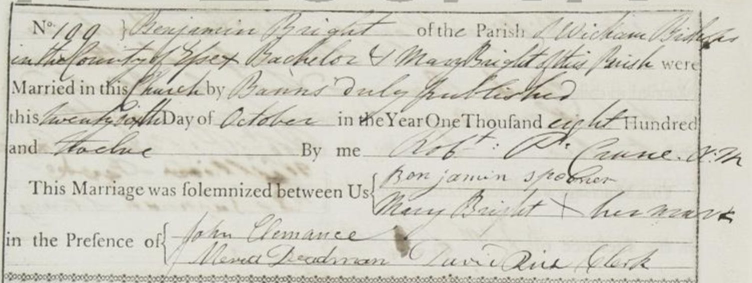 No. 199 } Benjamin Bright of the Parish of Wickham Bishops
in the County of Essex Bachelor & Mary Bright of this Parish were
Married in this Church by Banns duly published
this twenty sixth Day of October in the Year One Thousand eight Hundred
and twelve By me Robt: P. Crane. V.M
This Marriage was solemnized between Us { Benjamin spooner
Mary Bright X her mark
in the Presence of { John Clemance
Deadman David Rist Clerk